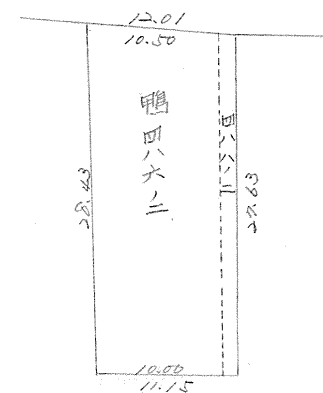 12.01
10.50
鴨四八六ノ二
四八六ノ三
28.43
27.63
10.00
11.15